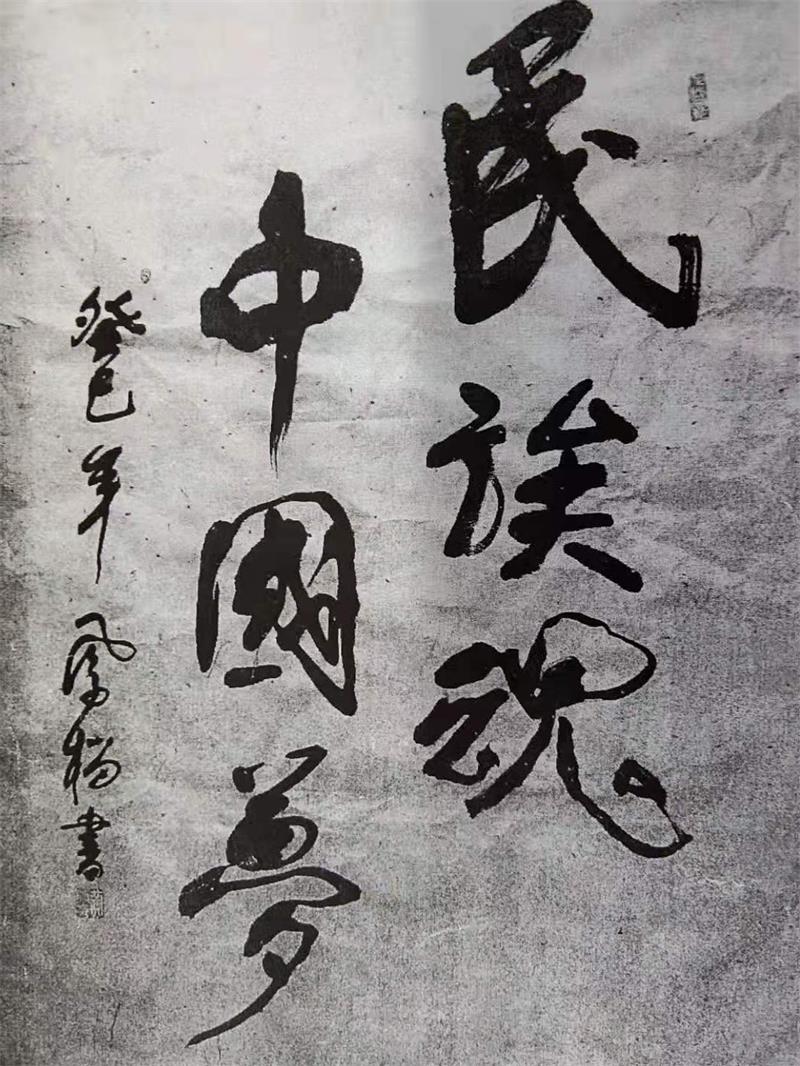 民族魂
中國夢
癸巳年 鳳楊書